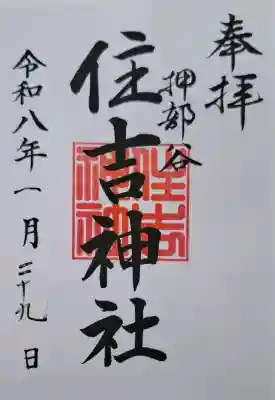 奉拝
押部谷
住吉神社
令和八年一月二十九日
住吉神社